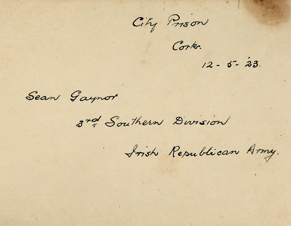 City Prison
Cork.
12-5-'23.
Sean Gaynor
3rd Southern Division
Irish Republican Army.